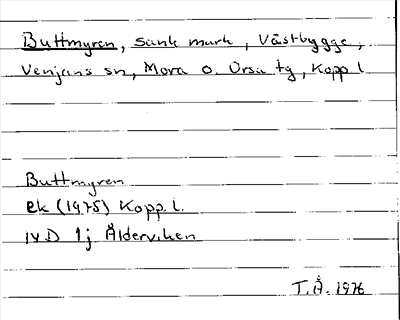 Buttmyren, sank mark, Västbygge,
Venjans sn, Mora o. Orsa tg, Kopp l
Buttmyren
ek (1975) Kopp. l.
14D 1j Ålderviken
T.Å. 1976